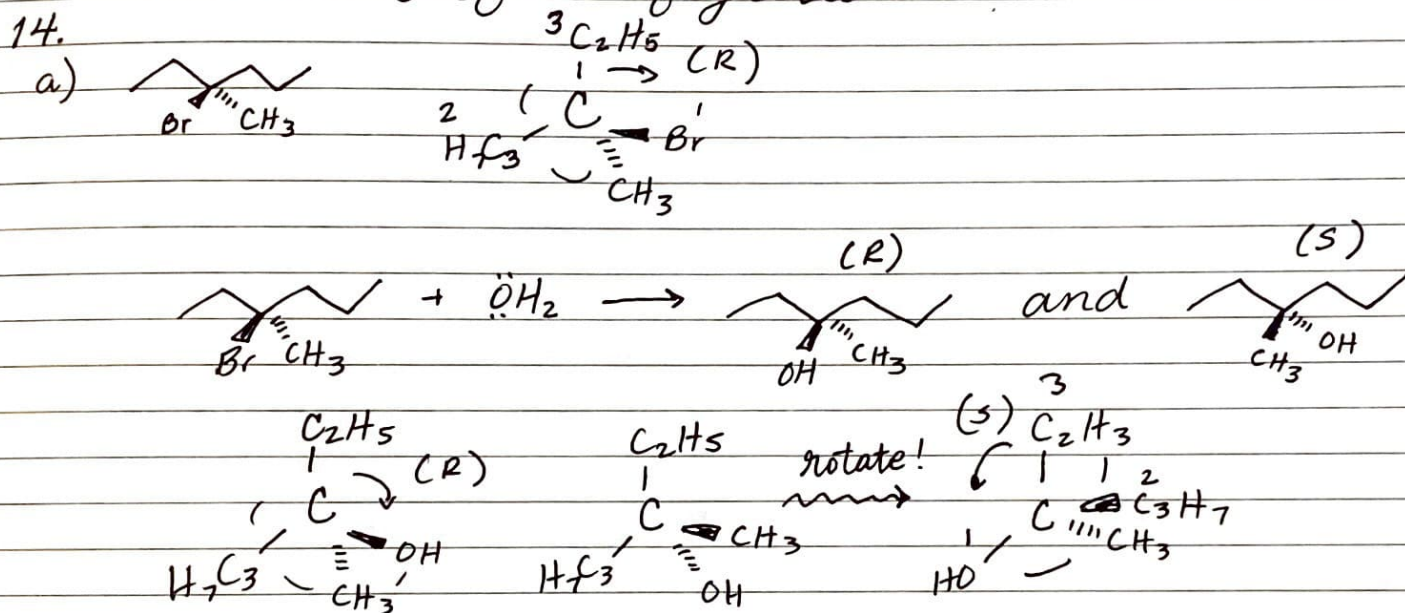 14.
a) Br CH3
3 C2H5 → (R)
2 H7C3 C Br 1
CH3
(R) (S)
Br CH3 + ÖH2 → OH CH3 and CH3 OH
C2H5 (R)
C
H7C3 OH
CH3
C2H5
C CH3
H7C3 OH
rotate!
(S) 3 C2H3
C 2 C3H7
1 HO CH3